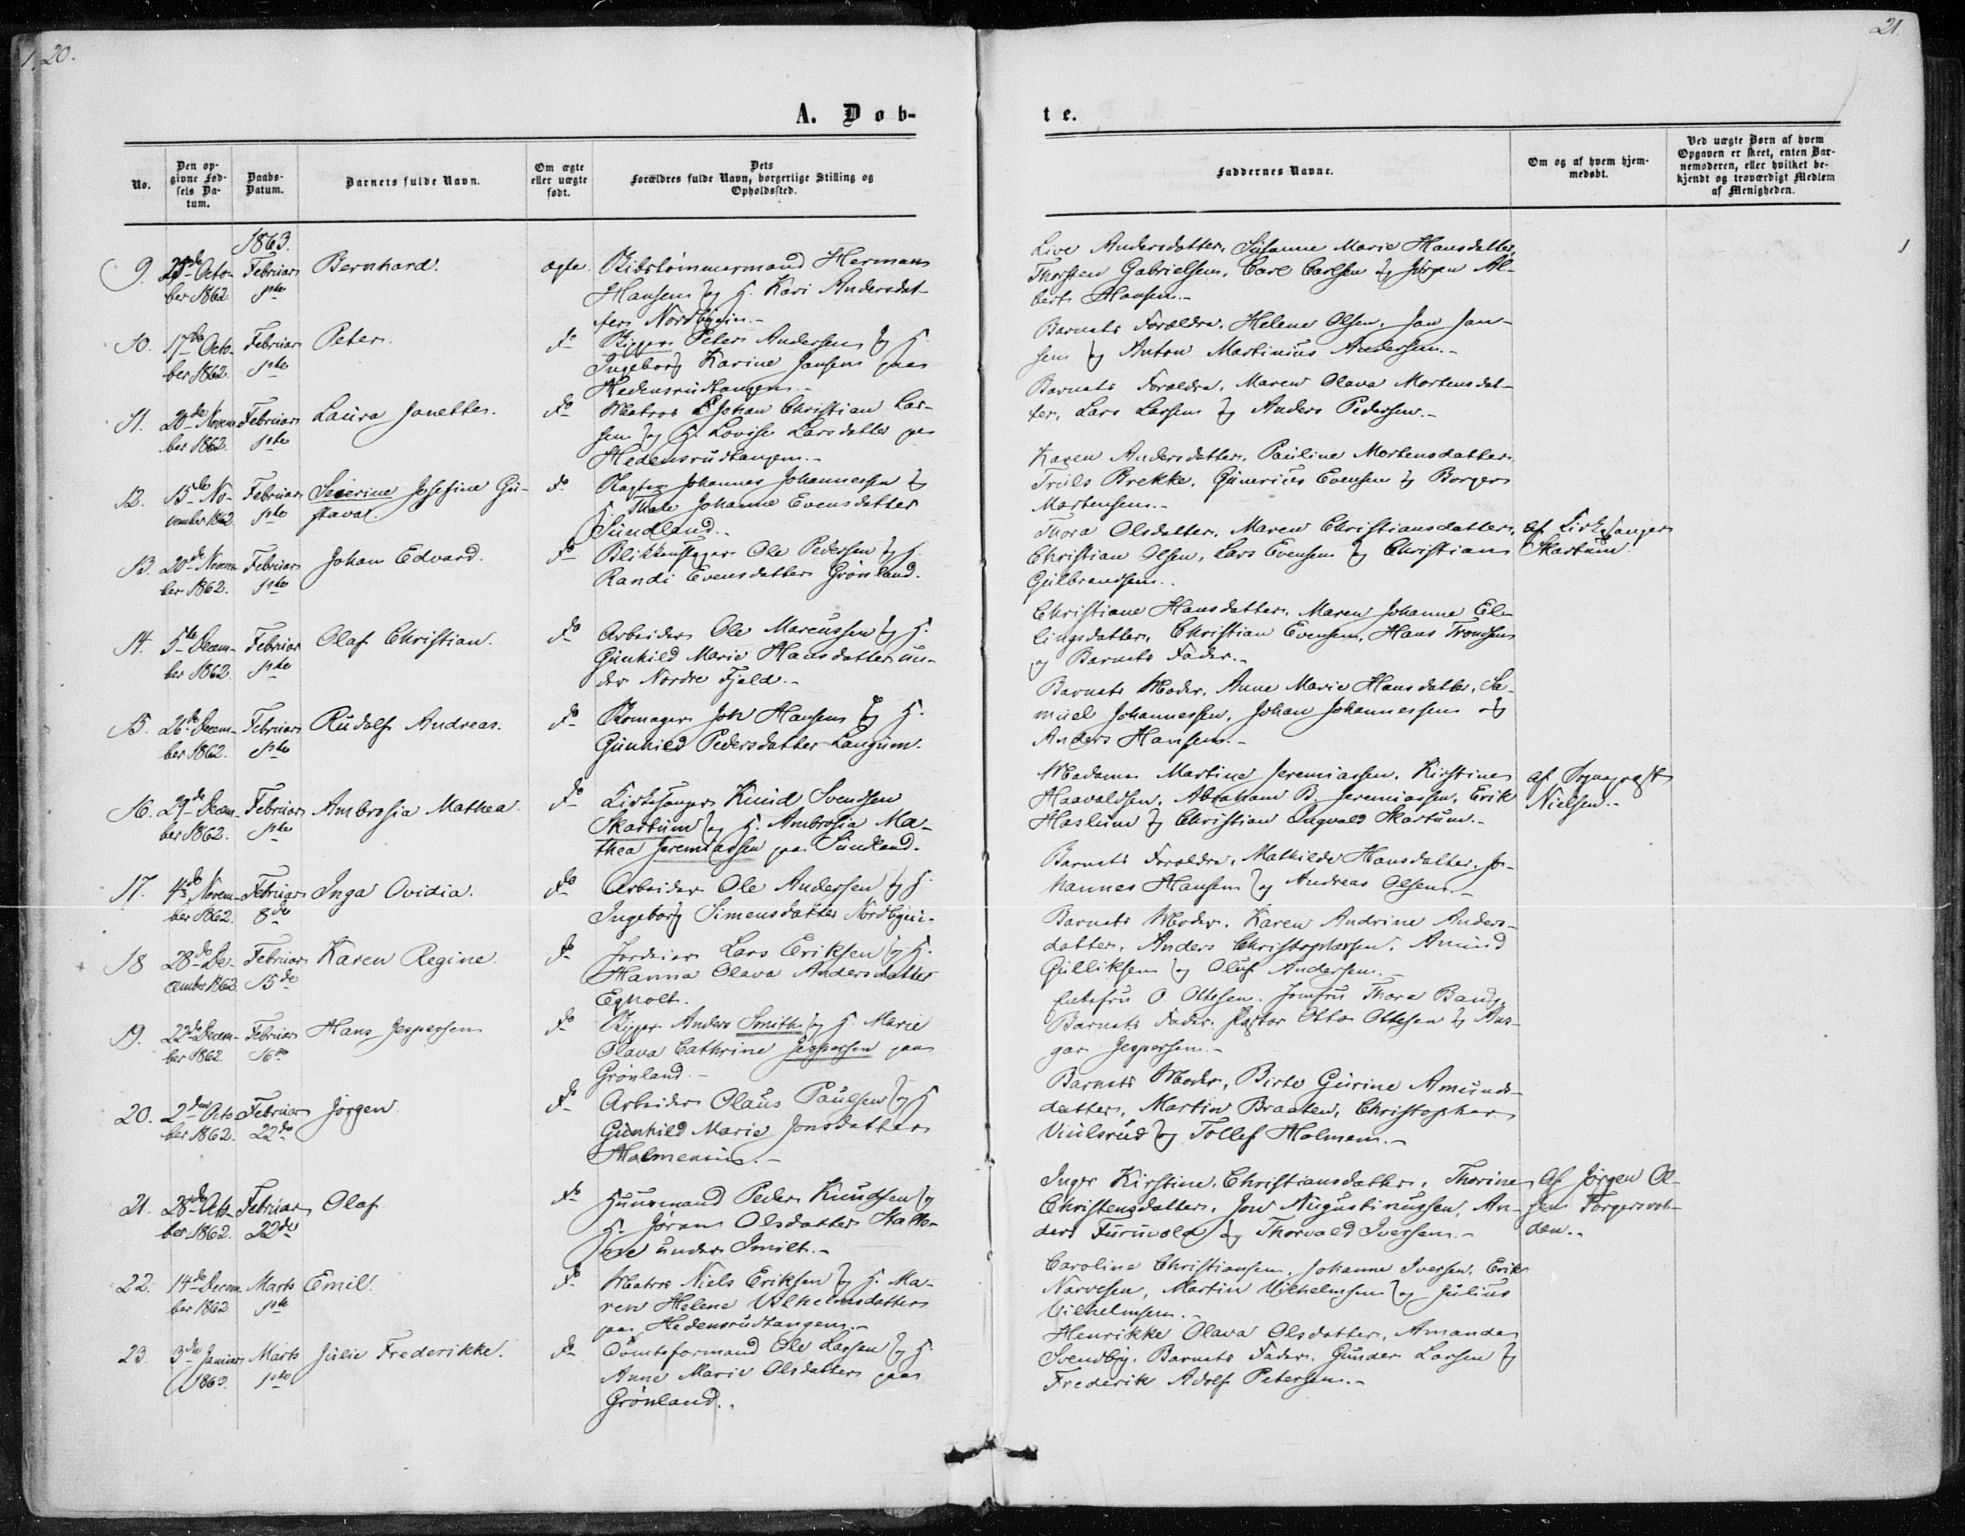 20.
21.
A. Døb-
te.
No.
Den op-
givne Fød-
sels Da-
tum.
Daabs-
Datum.
Barnets fulde Navn.
Om ægte
eller uægte
født.
Dets
Forældres fulde Navn, borgerlige Stilling og
Opholdssted.
Faddernes Navne.
Om og af hvem hjem-
medøbt.
Ved uægte Børn af hvem
Opgaven er skeet, enten Bar-
nemoderen, eller hvilket be-
kjendt og troværdigt Medlem
af Menigheden.
1863.
9. 25de Octo- Februar Bernhard. ægte Skibstømmermand Herman
ber 1862 1ste Hansen og H. Kari Andersdat-
ter Nordbyein.-
Live Andersdatter, Susanne Marie Hansdatter,
Thorsten Gabrielsen, Carl Carlsen og Jørgen Al-
bert Hansen.-
10. 17de Octo- Februar Peter. do Rigger Peter Andersen og H.
ber 1862. 1ste Ingeborg Karine Jansen paa
Hedensrudtangen.-
Barnets Forældre, Helene Olsen, Jan Jan-
sen og Anton Martinius Andersen.-
11. 20de Novem- Februar Laura Janette. do Matros Johan Christian Lar-
ber 1862. 1ste sen og H. Lovise Larsdatter paa
Hedensrudtangen.-
Barnets Forældre, Maren Olava Mortensdat-
ter, Lars Larsen og Anders Pedersen.-
12. 15de No- Februar Severine Josefine Gu- do Johannes Johannessen og
vember 1862 1ste stava. H. Thale Johanne Evensdatter
Sundland.-
Karen Andersdatter, Pauline Mortensdatter,
Truls Brekke, Gunerius Evensen og Borger
Martensen.-
13. 20de Novem- Februar Johan Edvard. do Blikkenslager Ole Pedersen og H.
ber 1862. 1ste Randi Evensdatter Grønland.
Thora Olsdatter, Maren Christiansdatter, af Kirkesanger
Christian Olsen, Lars Evensen og Christian Skartum.
Gulbrandsen.
14. 5te Decem- Februar Olaf Christian. do Arbeider Ole Marcussen og H.
ber 1862. 1ste Gunhild Marie Hansdatter un-
der Nordre Fjeld.-
Christiane Hansdatter, Maren Johanne El-
lingsdatter, Christian Evensen, Hans Trondsen
og Barnets Fader.-
15. 26de Decem- Februar Rudolf Andreas. do Skomager Joh Hansen og H.
ber 1862. 1ste Gunhild Pedersdatter Langum.
Barnets Moder, Anne Marie Hansdatter, Sa-
muel Johannessen, Johan Johannessen og
Anders Hansen.-
16. 29de Decem- Februar Ambrosia Mathea. do Kirkesanger Knud Svendsen
ber 1862. 1ste Skartum og H. Ambrosia Ma-
thea Jeremiassen paa Sundland.
Madame Martine Jeremiassen, Kirstine af Sognepræst
Haavaldsen, Abraham B. Jeremiassen, Erik Nielsen.-
Haslum og Christian Ingvald Skartum.-
17. 4de Novem- Februar Inga Ovidia. do Arbeider Ole Andersen og H.
ber 1862. 8de Ingeborg Simensdatter Nordbyein.
Barnets Forældre, Mathilde Hansdatter, Jo-
hannes Hansen og Andreas Olsen.-
18 28de De- Februar Karen Regine. do Jordeier Lars Eriksen og H.
cember 1862 15de Hanna Olava Andersdatter
Egholt.
Barnets Moder, Karen Andrine Anders-
datter, Anders Christophersen, Amund
Gulliksen og Oluf Andersen.-
19. 22de Decem- Februar Hans Jespersen do Rigger Anders Smith og H. Marie
ber 1862. 16de Olava Cathrine Jespersen paa
Grønland.-
O Ottesen, Jomfru Thora Bang,
Barnets Fader, Pastor Otto Ottesen og Ans-
gar Jespersen.-
20. 2den Octo- Februar Jørgen. do Arbeider Olaus Paulsen og H
ber 1862. 22de Gunhild Marie Jonsdatter
Holmen.-
Barnets Moder, Birte Gurine Amunds-
datter, Martin Braaten, Christopher
Viulsrud og Tollef Holmen.-
21. 28de Octo- Februar Olaf do Huusmand Peder Knudsen og
ber 1862. 22de H. Jøran Olsdatter
under Smilt.-
Inger Kirstine Christiansdatter, Thorine Af Jørgen Ol-
Christensdatter, Jon Augustinussen, An- sen
ders Furuvold og Thorvald Iversen.- den.-
22. 14de Decem- Marts Emil. do Matros Niels Eriksen og H. Ma-
ber 1862 1ste ren Helene Vilhelmsdatter
paa Hedensrudtangen.-
Caroline Christiansen, Johanne Iversen, Erik
Narvesen, Martin Vilhelmsen og Julius
Vilhelmsen.-
23. 3die Januar Marts Julie Frederikke. do Tomteformand Ole Larsen og H
1863. 1ste Anne Marie Olsdatter paa
Grønland.
Henrikke Olava Olsdatter, Amanda
Svendby, Barnets Fader, Gunder Larsen og
Frederik Adolf Petersen.-